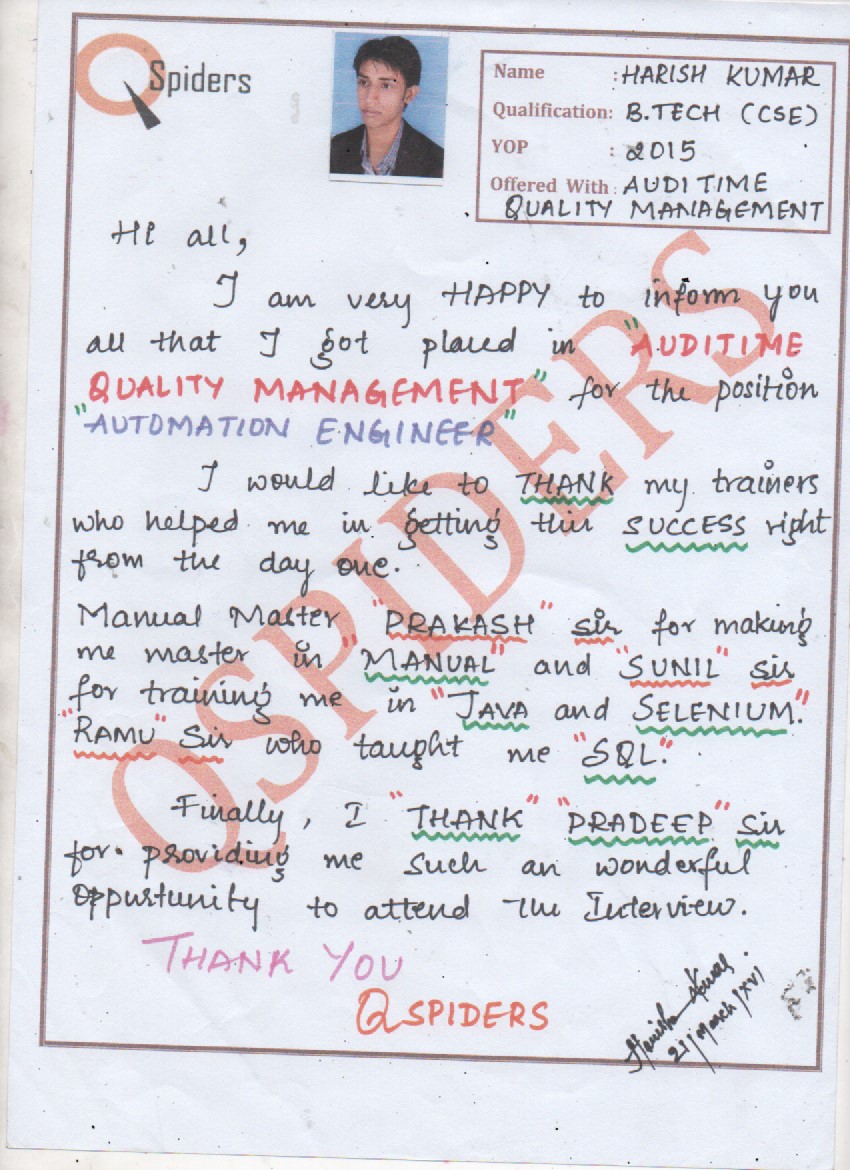 QSpiders
Name : HARISH KUMAR
Qualification: B.TECH (CSE)
YOP : 2015
Offered With : AUDITIME
QUALITY MANAGEMENT
Hi all,
I am very HAPPY to inform you
all that I got placed in "AUDITIME
QUALITY MANAGEMENT" for the position
"AUTOMATION ENGINEER"
I would like to THANK my trainers
who helped me in getting this SUCCESS right
from the day one.
Manual Master "PRAKASH" sir for making
me master in "MANUAL" and "SUNIL" sir
for training me in "JAVA and SELENIUM."
"RAMU" Sir who taught me "SQL."
Finally, I "THANK" "PRADEEP" sir
for providing me such an wonderful
oppurtunity to attend the Interview.
THANK YOU
QSPIDERS
Harish Kumar
21/March/XVI
QSPIDERS